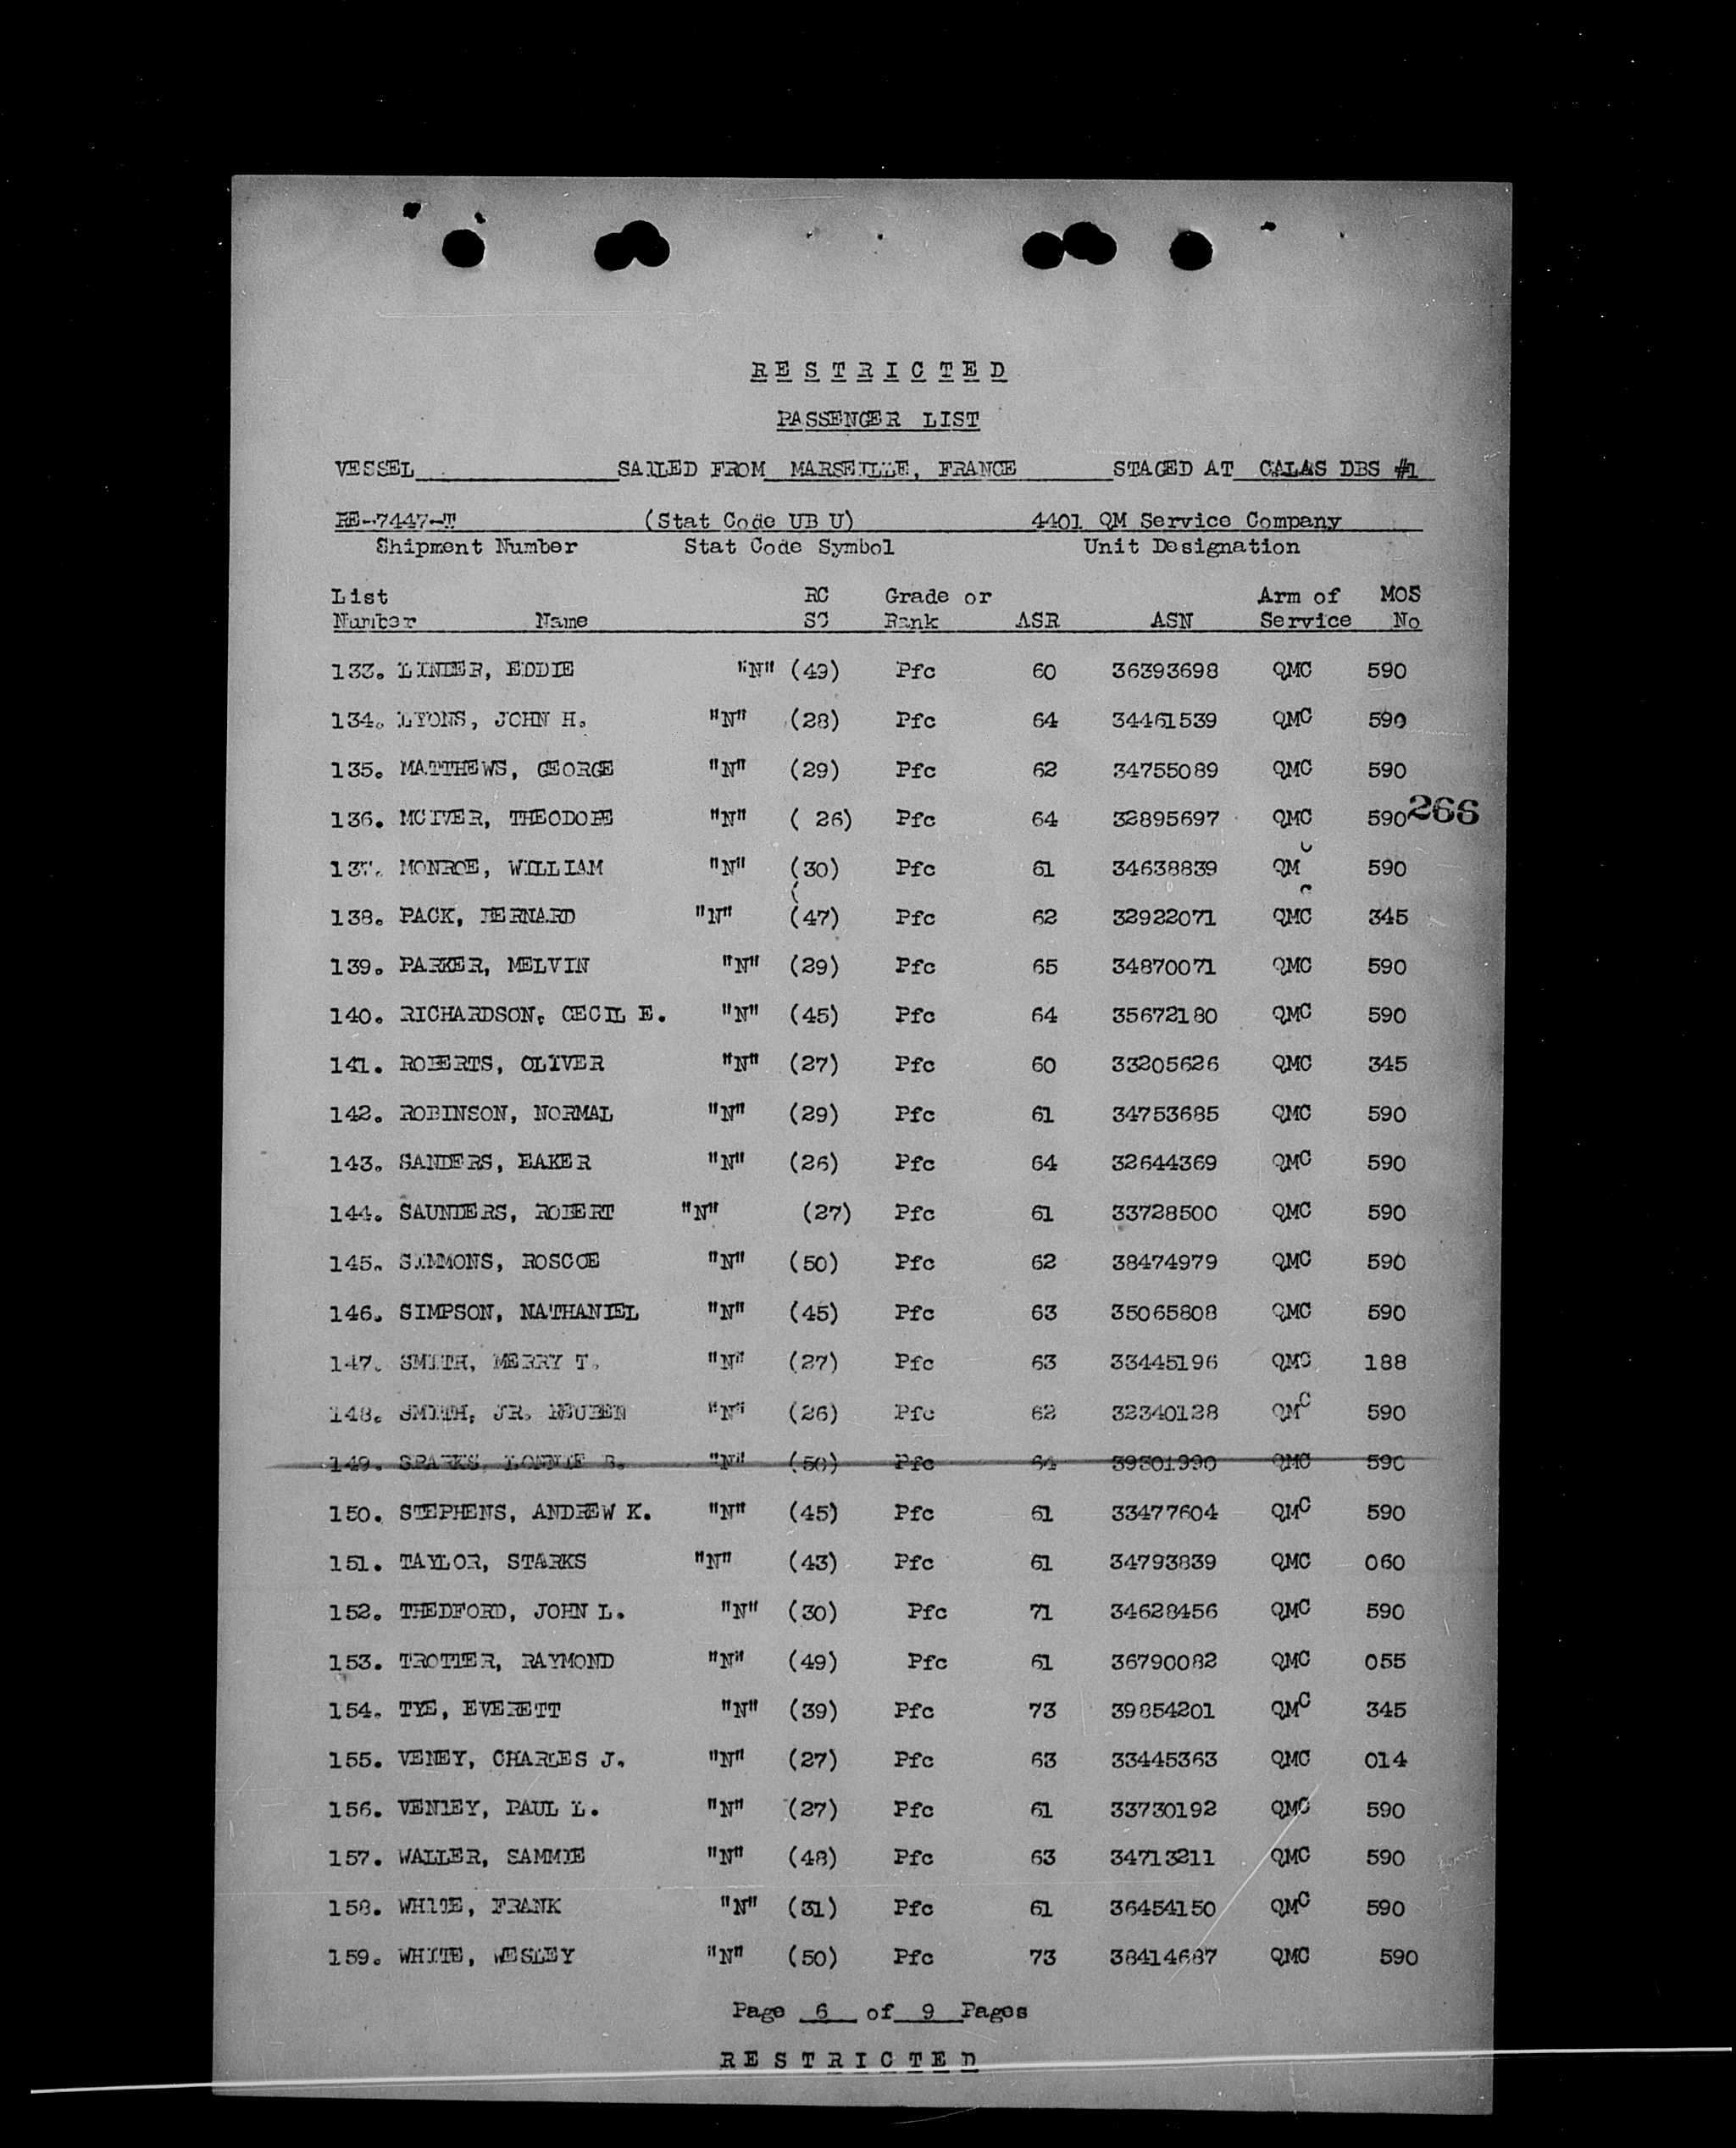 RESTRICTED
PASSENGER LIST
VESSEL SAILED FROM MARSEILLE, FRANCE STAGED AT CALAS DBS #1
RE-7447-T (Stat Code UB U) 4401 QM Service Company
Shipment Number Stat Code Symbol Unit Designation
List RC Grade or Arm of MOS
Number Name SC Rank ASR ASN Service No
133. LINDER, EDDIE "N" (49) Pfc 60 36393698 QMC 590
134. LYONS, JOHN H. "N" (28) Pfc 64 34461539 QMC 590
135. MATTHEWS, GEORGE "N" (29) Pfc 62 34755089 QMC 590
136. MCIVER, THEODORE "N" ( 26) Pfc 64 32895697 QMC 590 266
137. MONROE, WILLIAM "N" (30) Pfc 61 34638839 QM 590
138. PACK, BERNARD "N" (47) Pfc 62 32922071 QMC 345
139. PARKER, MELVIN "N" (29) Pfc 65 34870071 QMC 590
140. RICHARDSON, CECIL E. "N" (45) Pfc 64 35672180 QMC 590
141. ROBERTS, OLIVER "N" (27) Pfc 60 33205626 QMC 345
142. ROBINSON, NORMAL "N" (29) Pfc 61 34753685 QMC 590
143. SANDERS, BAKER "N" (26) Pfc 64 32644369 QMC 590
144. SAUNDERS, ROBERT "N" (27) Pfc 61 33728500 QMC 590
145. SIMMONS, ROSCOE "N" (50) Pfc 62 38474979 QMC 590
146. SIMPSON, NATHANIEL "N" (45) Pfc 63 35065808 QMC 590
147. SMITH, MERRY T. "N" (27) Pfc 63 33445196 QMC 188
148. SMITH, JR. REUBEN "N" (26) Pfc 62 32340128 QMC 590
149. SPARKS, LONNIE B. "N" (50) Pfc 64 QMC 590
150. STEPHENS, ANDREW K. "N" (45) Pfc 61 33477604 QMC 590
151. TAYLOR, STARKS "N" (43) Pfc 61 34793839 QMC 060
152. THEDFORD, JOHN L. "N" (30) Pfc 71 34628456 QMC 590
153. TROTTER, RAYMOND "N" (49) Pfc 61 36790082 QMC 055
154. TYE, EVERETT "N" (39) Pfc 73 39854201 QMC 345
155. VENEY, CHARLES J. "N" (27) Pfc 63 33445363 QMC 014
156. VENIEY, PAUL L. "N" (27) Pfc 61 33730192 QMC 590
157. WALLER, SAMMIE "N" (48) Pfc 63 34713211 QMC 590
158. WHITE, FRANK "N" (31) Pfc 61 36454150 QMC 590
159. WHITE, WESLEY "N" (50) Pfc 73 38414687 QMC 590
Page 6 of 9 Pages
RESTRICTED